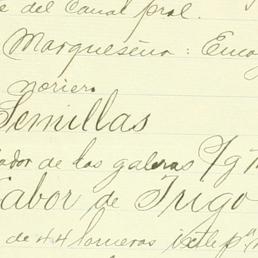 e del Canal pral.
Marqueseña: Enca
noriero
Semillas
ador de las galeras
Labor de Trigo
de 44 lomeros ixtle pª